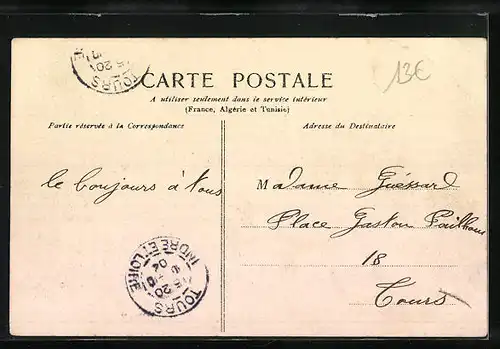 CARTE POSTALE
13€
A utiliser seulement dans le service intérieur
(France, Algérie et Tunisie)
Partie réservée à la Correspondance
Adresse du Destinataire
le boujours à tous
Madame Guéssard
Place Gaston Pailhou
18
Tours
TOURS
15 20
TOURS
INDRE ET LOIRE
15 20
04